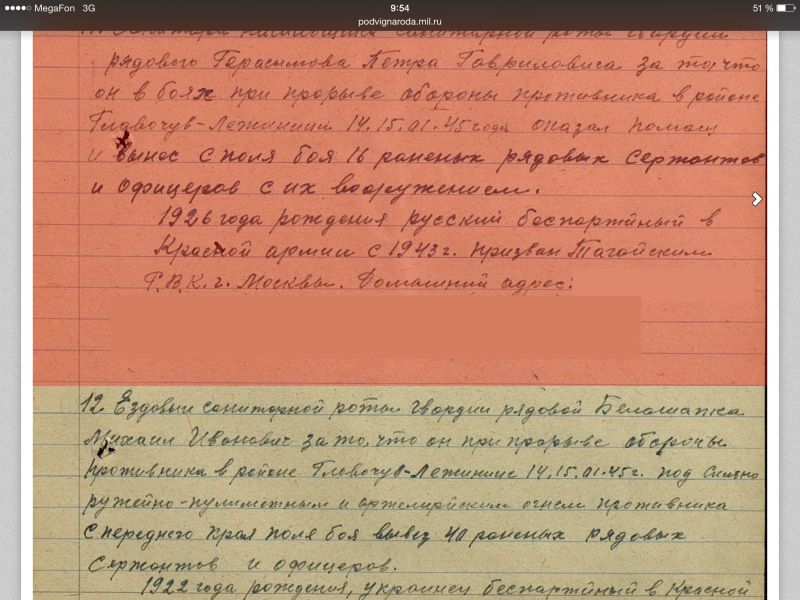 MegaFon 3G 9:54 51 %
podvignaroda.mil.ru
санитарной роты гвардии
рядового Герасимова Петра Гавриловича за то, что
он в боях при прорыве обороны противника в районе
Гловочув-Лежинице 14.15.01.45 года оказал помощь
и вынос с поля боя 16 раненых рядовых сержонтов
и офицеров с их вооружением.
1926 года рождения русский беспартийный в
Красной армии с 1943 г. призван Тагайским
Р.В.К. г. Москвы. Домашний адрес:
12 Ездовый санитарной роты гвардии рядовой Белошапка
Михаил Иванович за то, что он при прорыве обороны
противника в районе Гловочув-Лежинице 14.15.01.45г. под сильно
ружейно-пулиметным и артелирийским огнем противника
с переднего края поля боя вывез 40 раненых рядовых
Сержонтов и офицеров.
1922 года рождения, украинец беспартийный в Красной